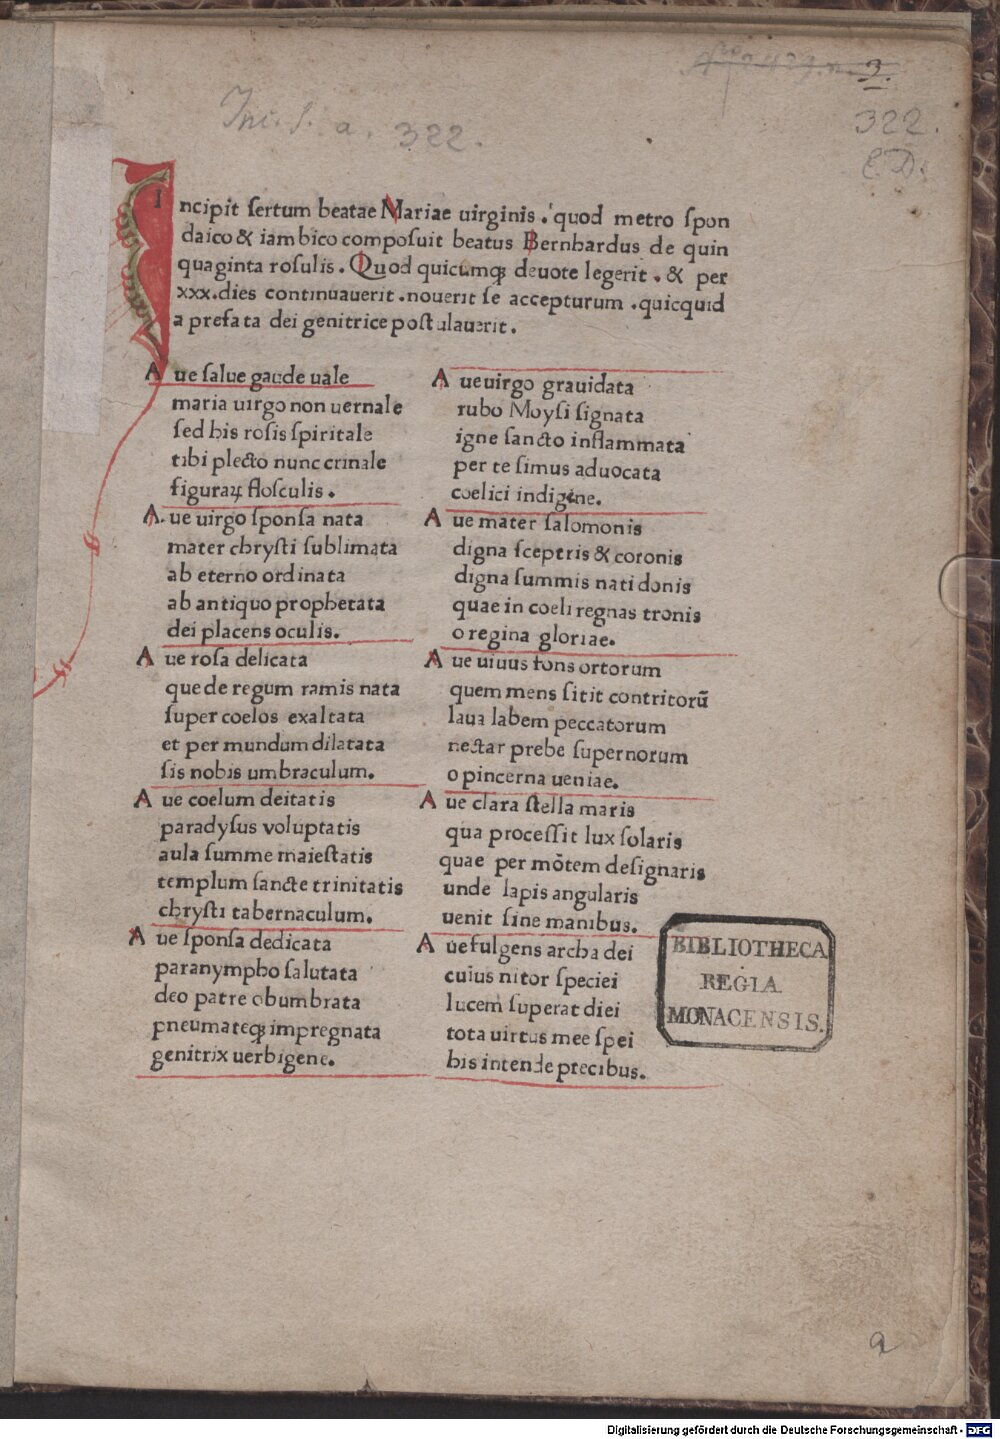 3.
Inc. s. a. 322.
322.
Incipit sertum beatae Mariae uirginis . quod metro spon
daico & iambico composuit beatus Bernhardus de quin
quaginta rosulis . Quod quicumqꝫ deuote legerit . & per
xxx.dies continuauerit .nouerit se accepturum .quicquid
a prefata dei genitrice postulauerit .
Aue salue gaude uale
maria uirgo non uernale
sed his rosis spiritale
tibi plecto nunc crinale
figuraꝝ flosculis .
Aue uirgo sponsa nata
mater chrysti sublimata
ab eterno ordinata
ab antiquo prophetata
dei placens oculis.
Aue rosa delicata
que de regum ramis nata
super coelos exaltata
et per mundum dilatata
sis nobis umbraculum.
Aue coelum deitatis
paradysus voluptatis
aula summe maiestatis
templum sancte trinitatis
chrysti tabernaculum.
Aue sponsa dedicata
paranympho salutata
deo patre obumbrata
pneumateqꝫ impregnata
genitrix uerbigene.
Aue uirgo grauidata
rubo Moysi signata
igne sancto inflammata
per te simus aduocata
coelici indigene.
Aue mater salomonis
digna sceptris & coronis
digna summis nati donis
quae in coeli regnas tronis
o regina gloriae.
Aue uiuus fons ortorum
quem mens sitit contritorū
laua labem peccatorum
nectar prebe supernorum
o pincerna ueniae.
Aue clara stella maris
qua processit lux solaris
quae per mōtem designaris
unde lapis angularis
uenit sine manibus.
Aue fulgens archa dei
cuius nitor speciei
lucem superat diei
tota uirtus mee spei
his intende precibus.
BIBLIOTHECA
REGIA
MONACENSIS.
a
Digitalisierung gefördert durch die Deutsche Forschungsgemeinschaft - DFG